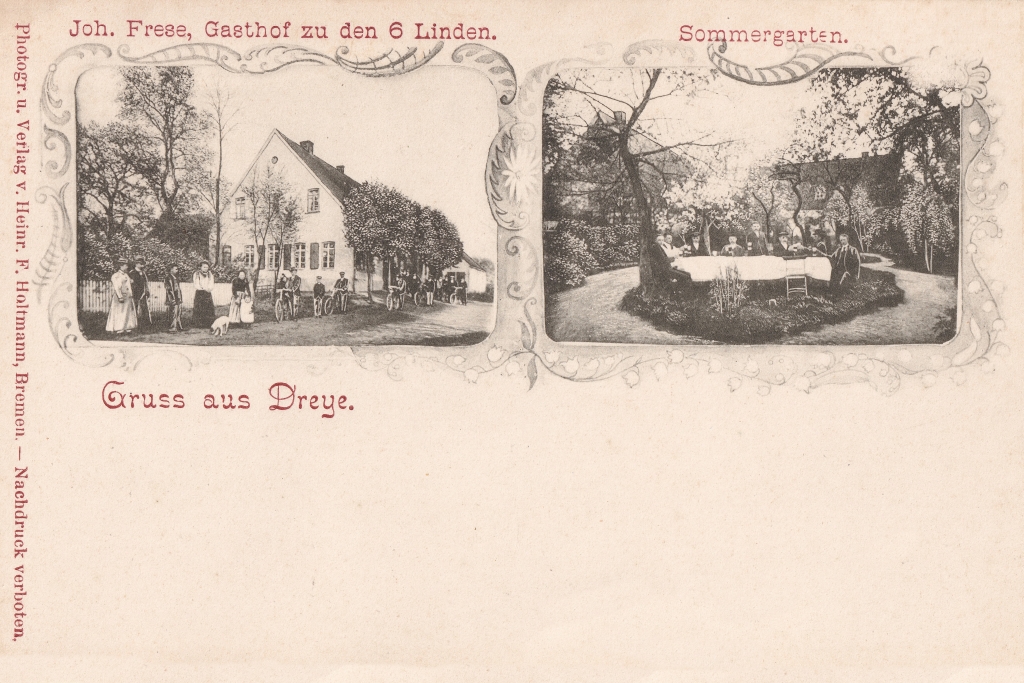 Joh. Frese, Gasthof zu den 6 Linden.
Sommergarten.
Gruss aus Dreye.
Photogr. u. Verlag v. Heinr. F. Holtmann, Bremen. — Nachdruck verboten,